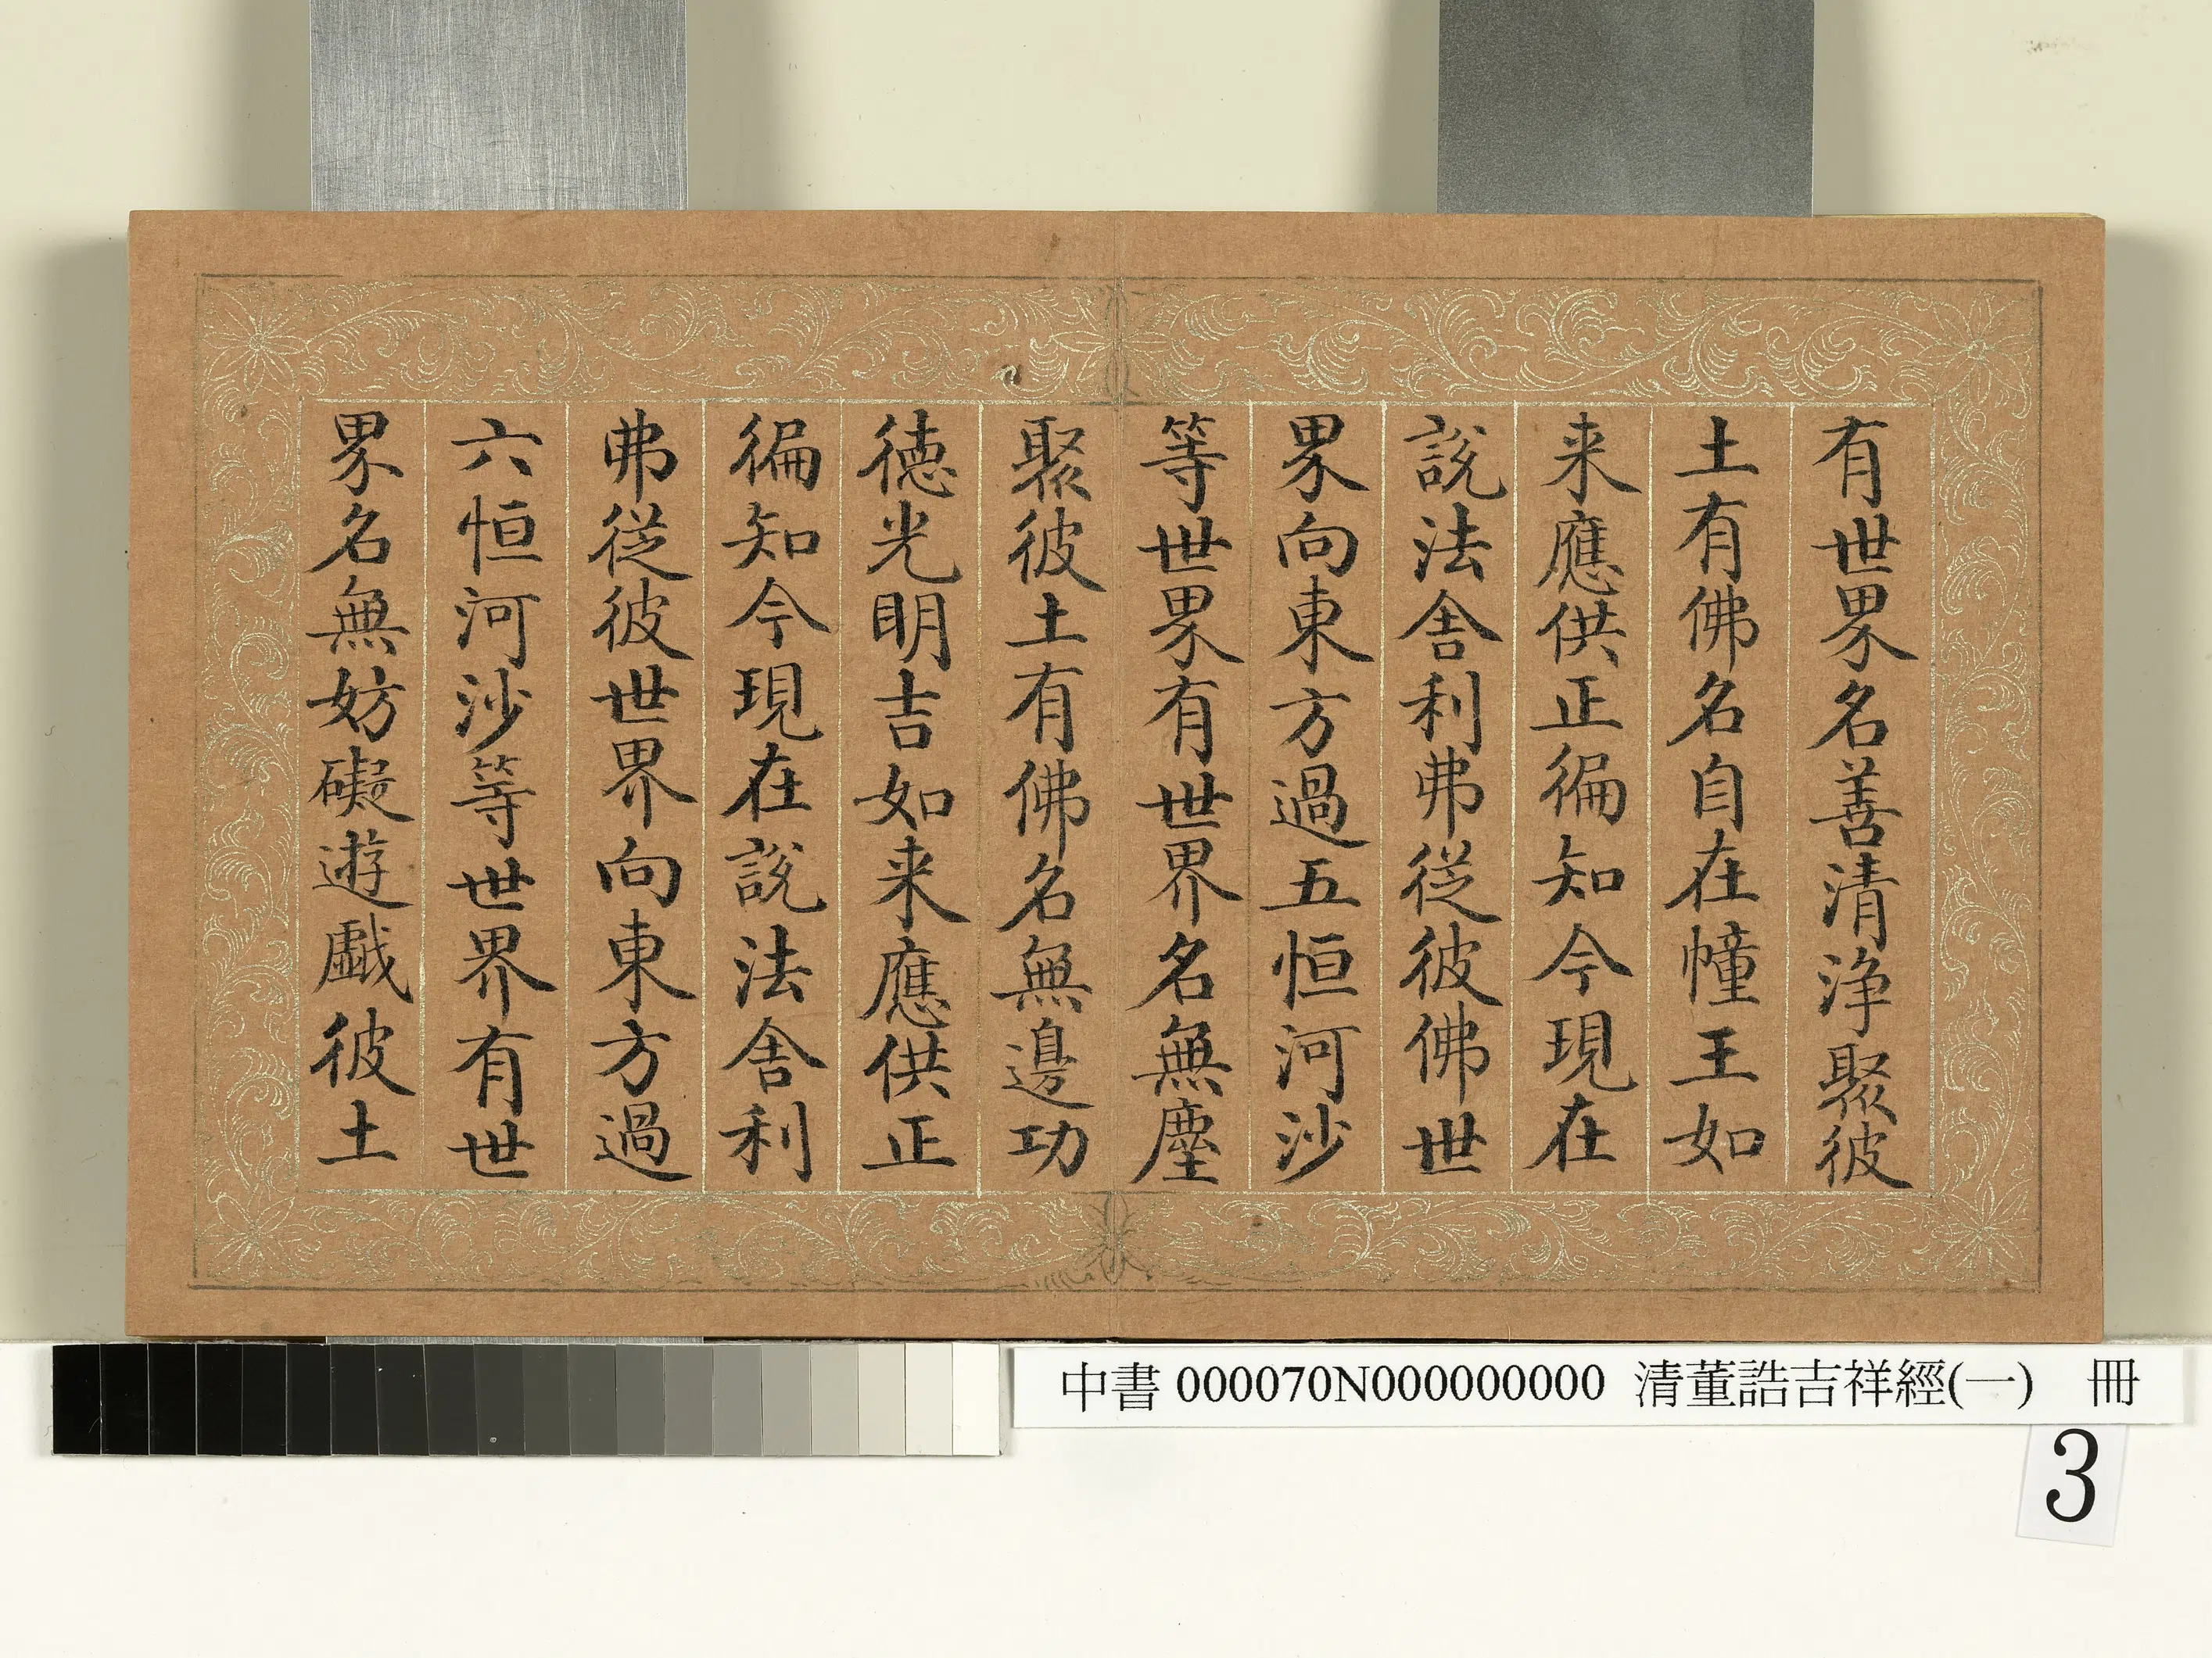 有世界名善清淨聚彼
土有佛名自在幢王如
来應供正徧知今現在
說法舍利弗從彼佛世
界向東方過五恒河沙
等世界有世界名無塵
聚彼土有佛名無邊功
徳光明吉如来應供正
徧知今現在說法舍利
弗從彼世界向東方過
六恒河沙等世界有世
界名無妨礙遊戱彼土
中書 000070N000000000 清董誥吉祥經(一) 冊
3